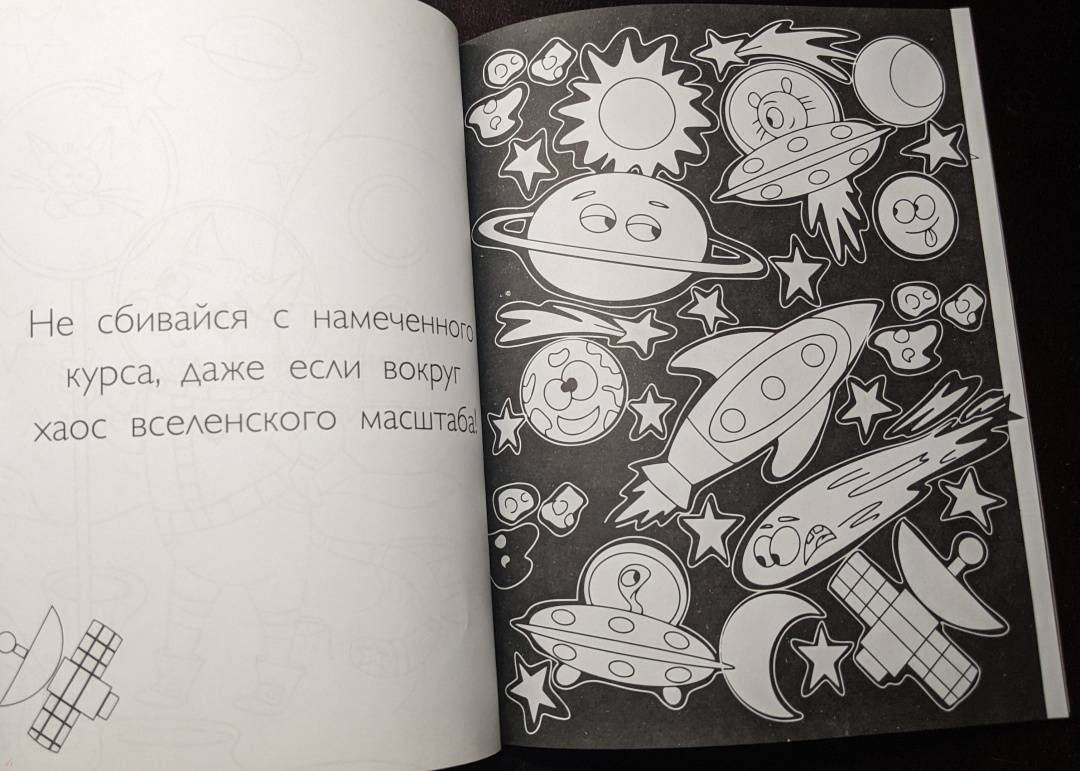 Не сбивайся с намеченного
курса, даже если вокруг
хаос вселенского масштаба!